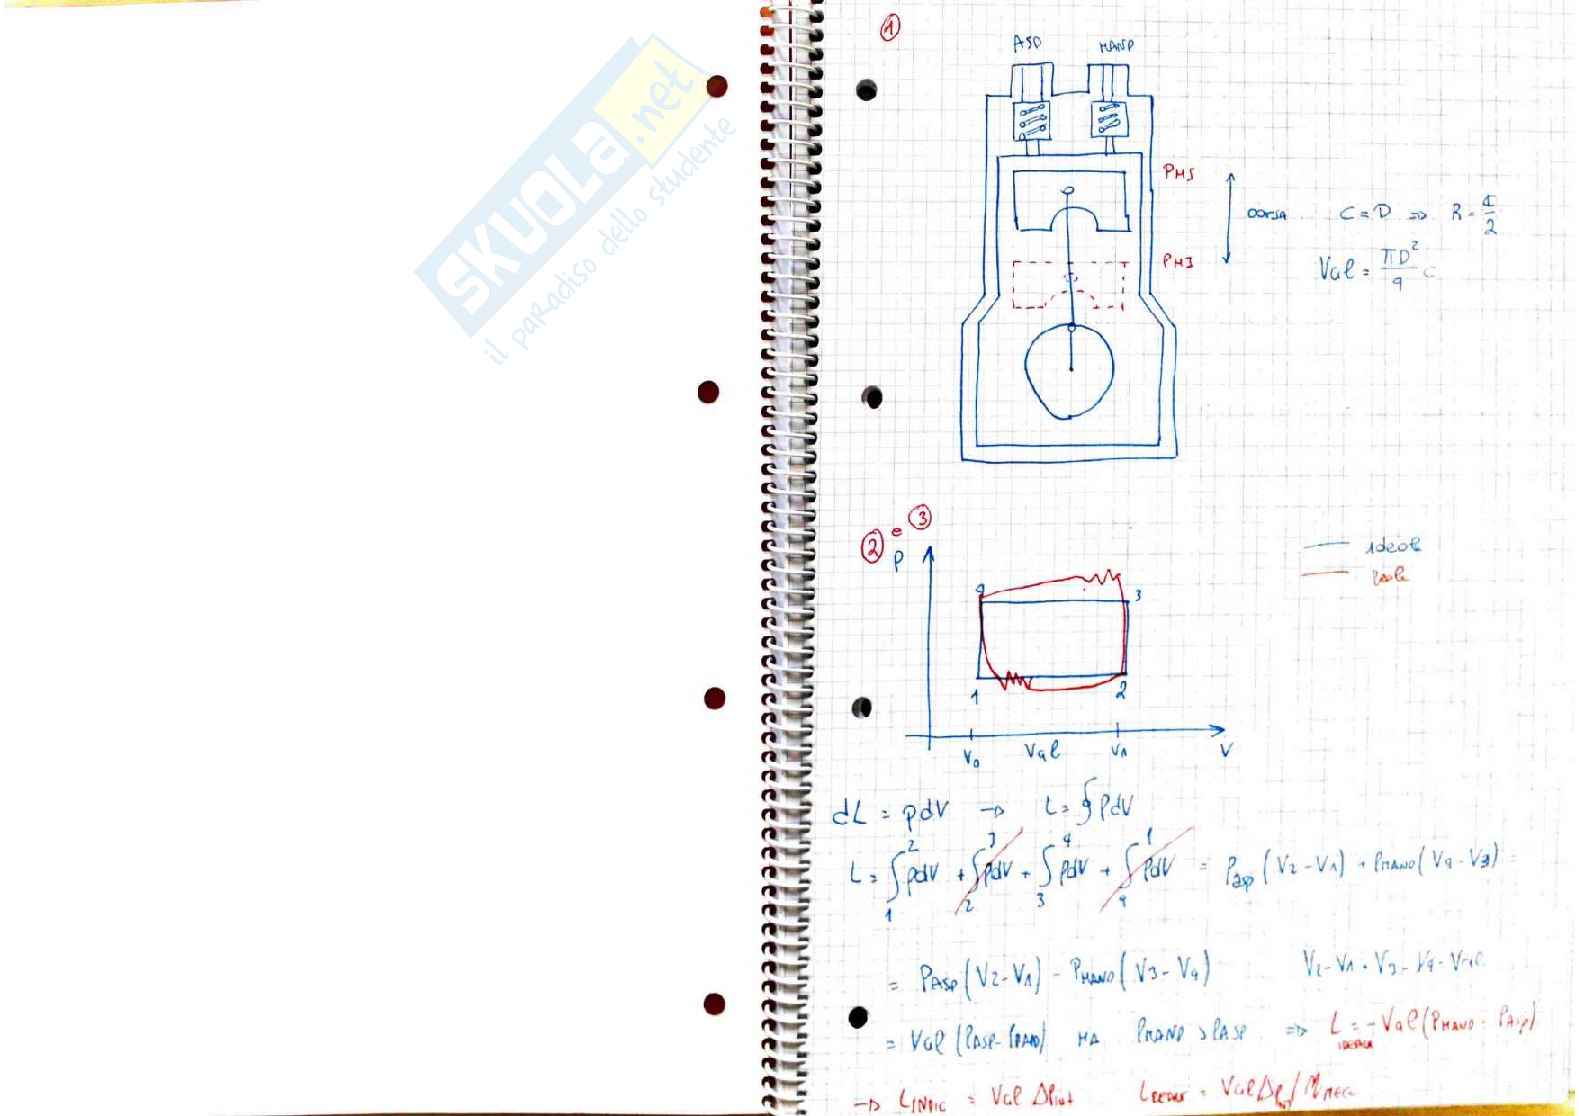 SKUOLA.net
il paradiso dello studente
1
ASP MAND
PMS
corsa C = D ⇒ R = C/2
PMI
Val = πD²/4 C
2 e 3
P
ideale
reale
4 3
1 2
V0 Val V1 V
dL = pdV → L = ∮ pdV
L = ∫₁² pdV + ∫₂³ pdV + ∫₃⁴ pdV + ∫₄¹ pdV = Pasp (V2-V1) + PMAND (V4-V3) =
= PASP (V2-V1) - PMAND (V3-V4) V2-V1 = V3-V4 = Val
= Val (PASP-PMAND) MA PMAND > PASP ⇒ L IDEALE = -Val (PMAND - PASP)
→ LINDIC = Val ΔPtot LREALE = Val ΔPtot/ηMECC